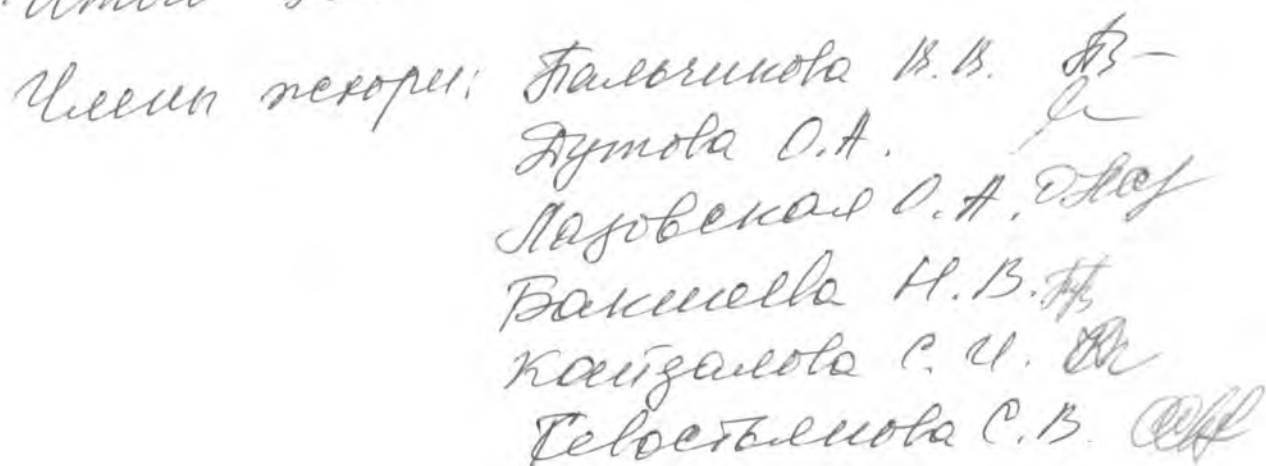 Члены жюри: Пальчикова В.В.
Дутова О.А.
Лазовская О.А.
Бакшеева Н.В.
Кайдалова С.И.
Севостьянова С.В.